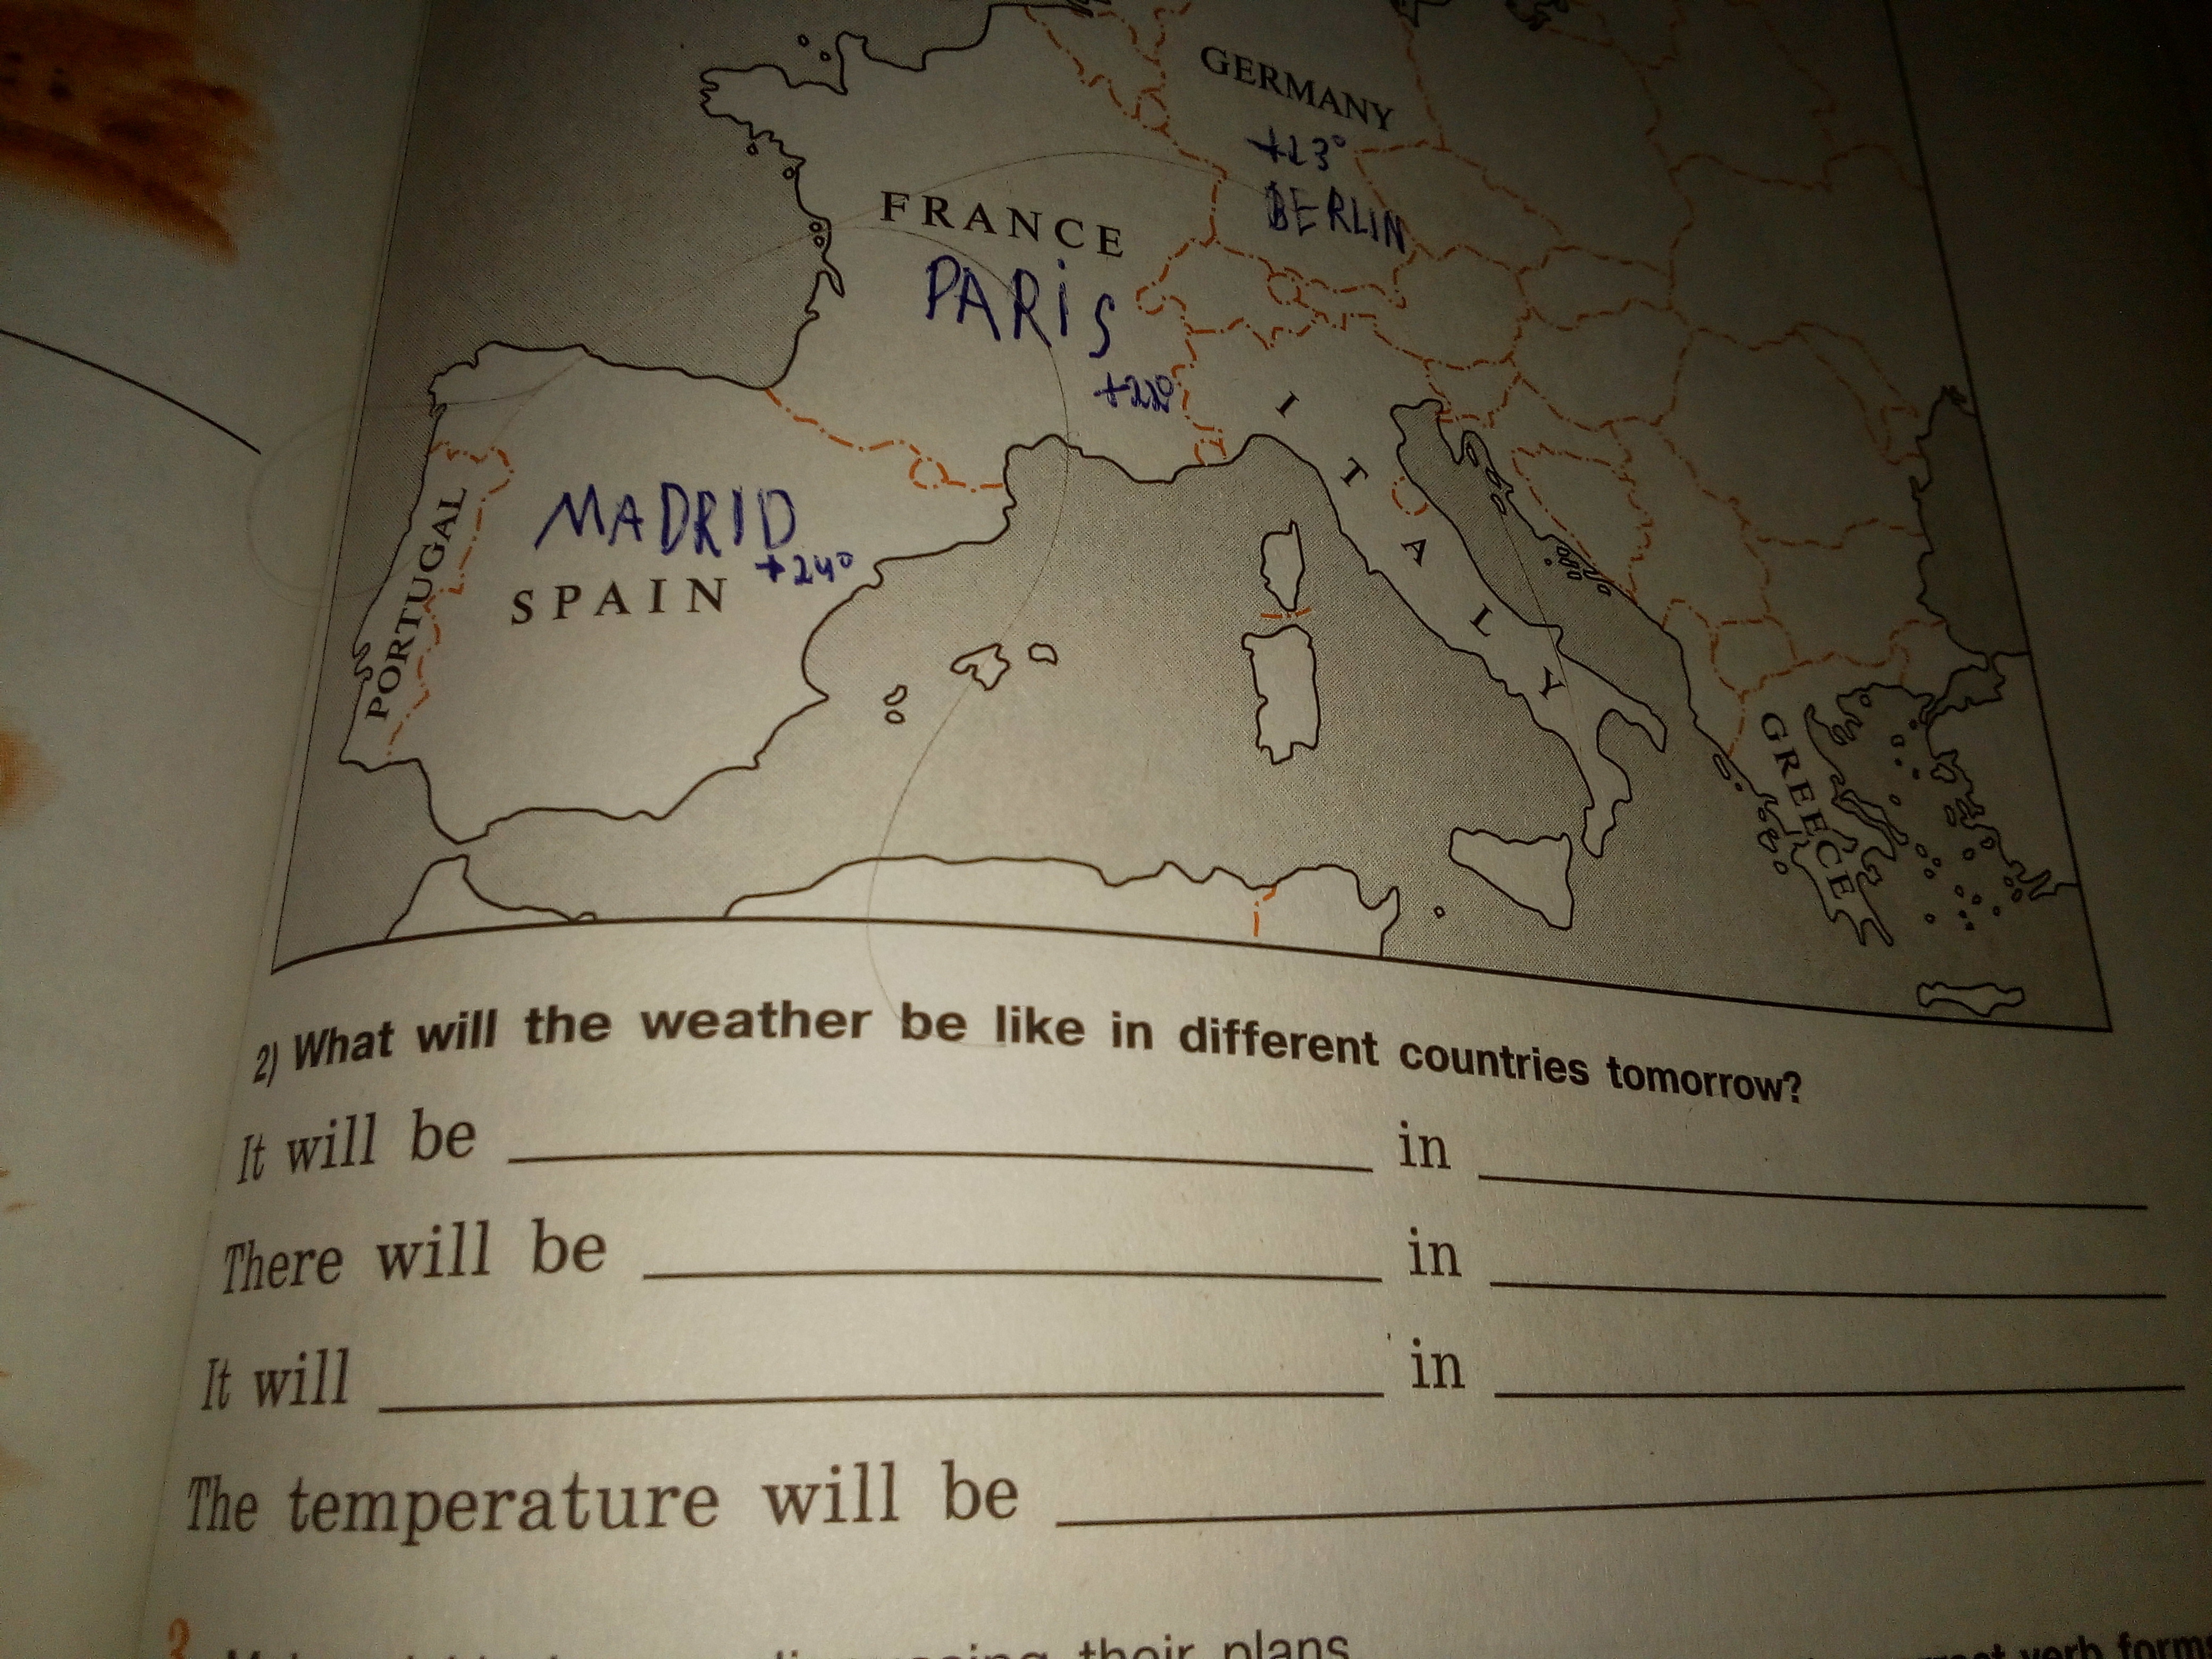 GERMANY
+13°
BERLIN
FRANCE
PARIS
+22°
ITALY
MADRID
+24°
SPAIN
PORTUGAL
GREECE
2) What will the weather be like in different countries tomorrow?
It will be ____ in ____
There will be ____ in ____
It will ____ in ____
The temperature will be ____
their plans
verb forms